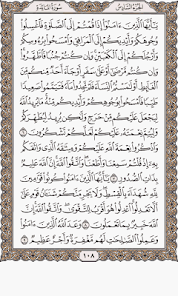 الجزء السادس سورة المائدة
يَٰٓأَيُّهَا ٱلَّذِينَ ءَامَنُوٓا۟ إِذَا قُمْتُمْ إِلَى ٱلصَّلَوٰةِ فَٱغْسِلُوا۟
وُجُوهَكُمْ وَأَيْدِيَكُمْ إِلَى ٱلْمَرَافِقِ وَٱمْسَحُوا۟ بِرُءُوسِكُمْ
وَأَرْجُلَكُمْ إِلَى ٱلْكَعْبَيْنِ وَإِن كُنتُمْ جُنُبًا فَٱطَّهَّرُوا۟
وَإِن كُنتُم مَّرْضَىٰٓ أَوْ عَلَىٰ سَفَرٍ أَوْ جَآءَ أَحَدٌ مِّنكُم مِّنَ
ٱلْغَآئِطِ أَوْ لَٰمَسْتُمُ ٱلنِّسَآءَ فَلَمْ تَجِدُوا۟ مَآءً فَتَيَمَّمُوا۟ صَعِيدًا
طَيِّبًا فَٱمْسَحُوا۟ بِوُجُوهِكُمْ وَأَيْدِيكُم مِّنْهُ مَا يُرِيدُ ٱللَّهُ
لِيَجْعَلَ عَلَيْكُم مِّنْ حَرَجٍ وَلَٰكِن يُرِيدُ لِيُطَهِّرَكُمْ
وَلِيُتِمَّ نِعْمَتَهُۥ عَلَيْكُمْ لَعَلَّكُمْ تَشْكُرُونَ ٦
وَٱذْكُرُوا۟ نِعْمَةَ ٱللَّهِ عَلَيْكُمْ وَمِيثَٰقَهُ ٱلَّذِى وَاثَقَكُم
بِهِۦٓ إِذْ قُلْتُمْ سَمِعْنَا وَأَطَعْنَا وَٱتَّقُوا۟ ٱللَّهَ إِنَّ ٱللَّهَ عَلِيمٌۢ
بِذَاتِ ٱلصُّدُورِ ٧ يَٰٓأَيُّهَا ٱلَّذِينَ ءَامَنُوا۟ كُونُوا۟ قَوَّٰمِينَ
لِلَّهِ شُهَدَآءَ بِٱلْقِسْطِ وَلَا يَجْرِمَنَّكُمْ شَنَـَٔانُ قَوْمٍ عَلَىٰٓ
أَلَّا تَعْدِلُوا۟ ٱعْدِلُوا۟ هُوَ أَقْرَبُ لِلتَّقْوَىٰ وَٱتَّقُوا۟ ٱللَّهَ إِنَّ
ٱللَّهَ خَبِيرٌۢ بِمَا تَعْمَلُونَ ٨ وَعَدَ ٱللَّهُ ٱلَّذِينَ ءَامَنُوا۟
وَعَمِلُوا۟ ٱلصَّٰلِحَٰتِ لَهُم مَّغْفِرَةٌ وَأَجْرٌ عَظِيمٌ ٩
١٠٨